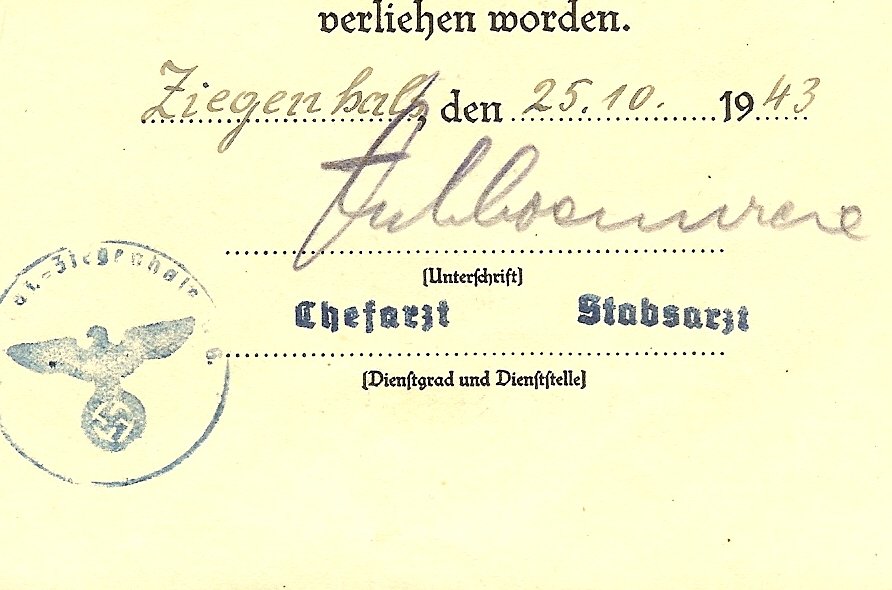 verliehen worden.
Ziegenhals, den 25.10. 1943
(Unterschrift)
Chefarzt Stabsarzt
(Dienstgrad und Dienststelle)
Ziegenhals